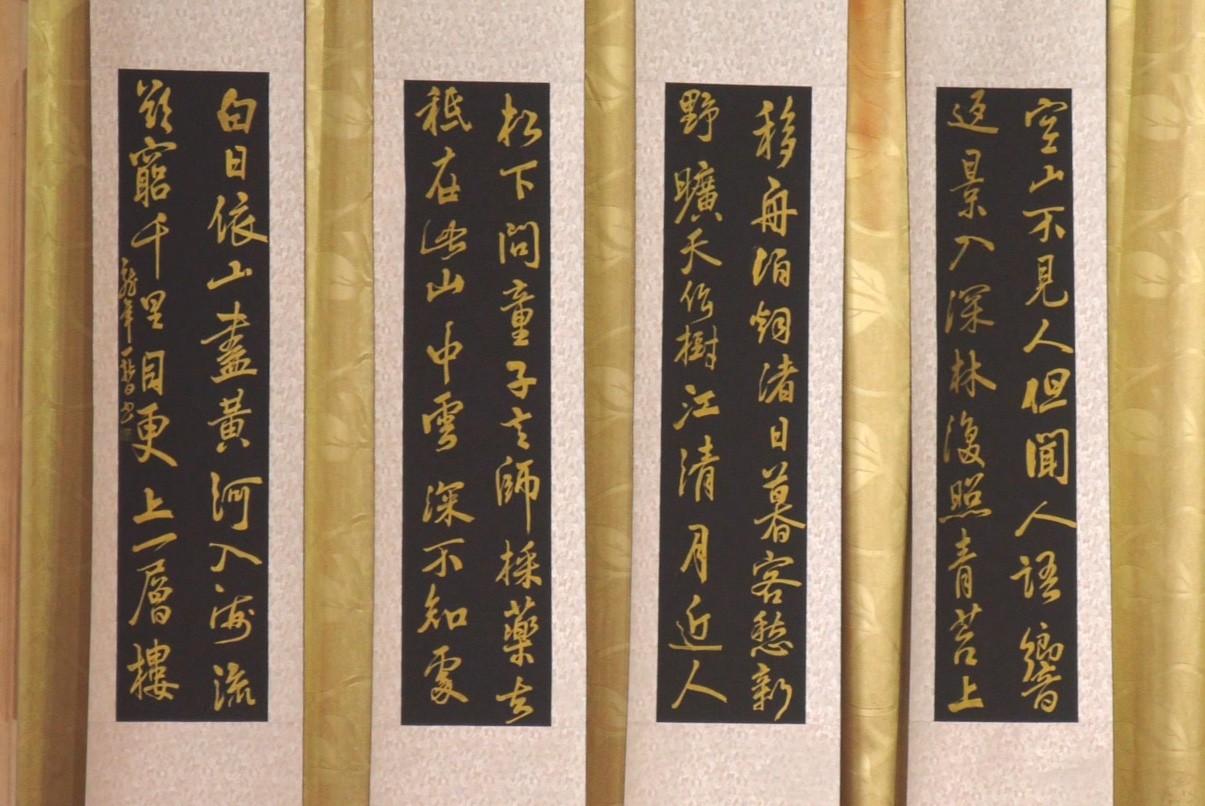 空山不見人但聞人語響
返景入深林復照青苔上
移舟泊烟渚日暮客愁新
野曠天低樹江清月近人
松下問童子言師採藥去
秪在此山中雲深不知處
白日依山盡黃河入海流
欲窮千里目更上一層樓